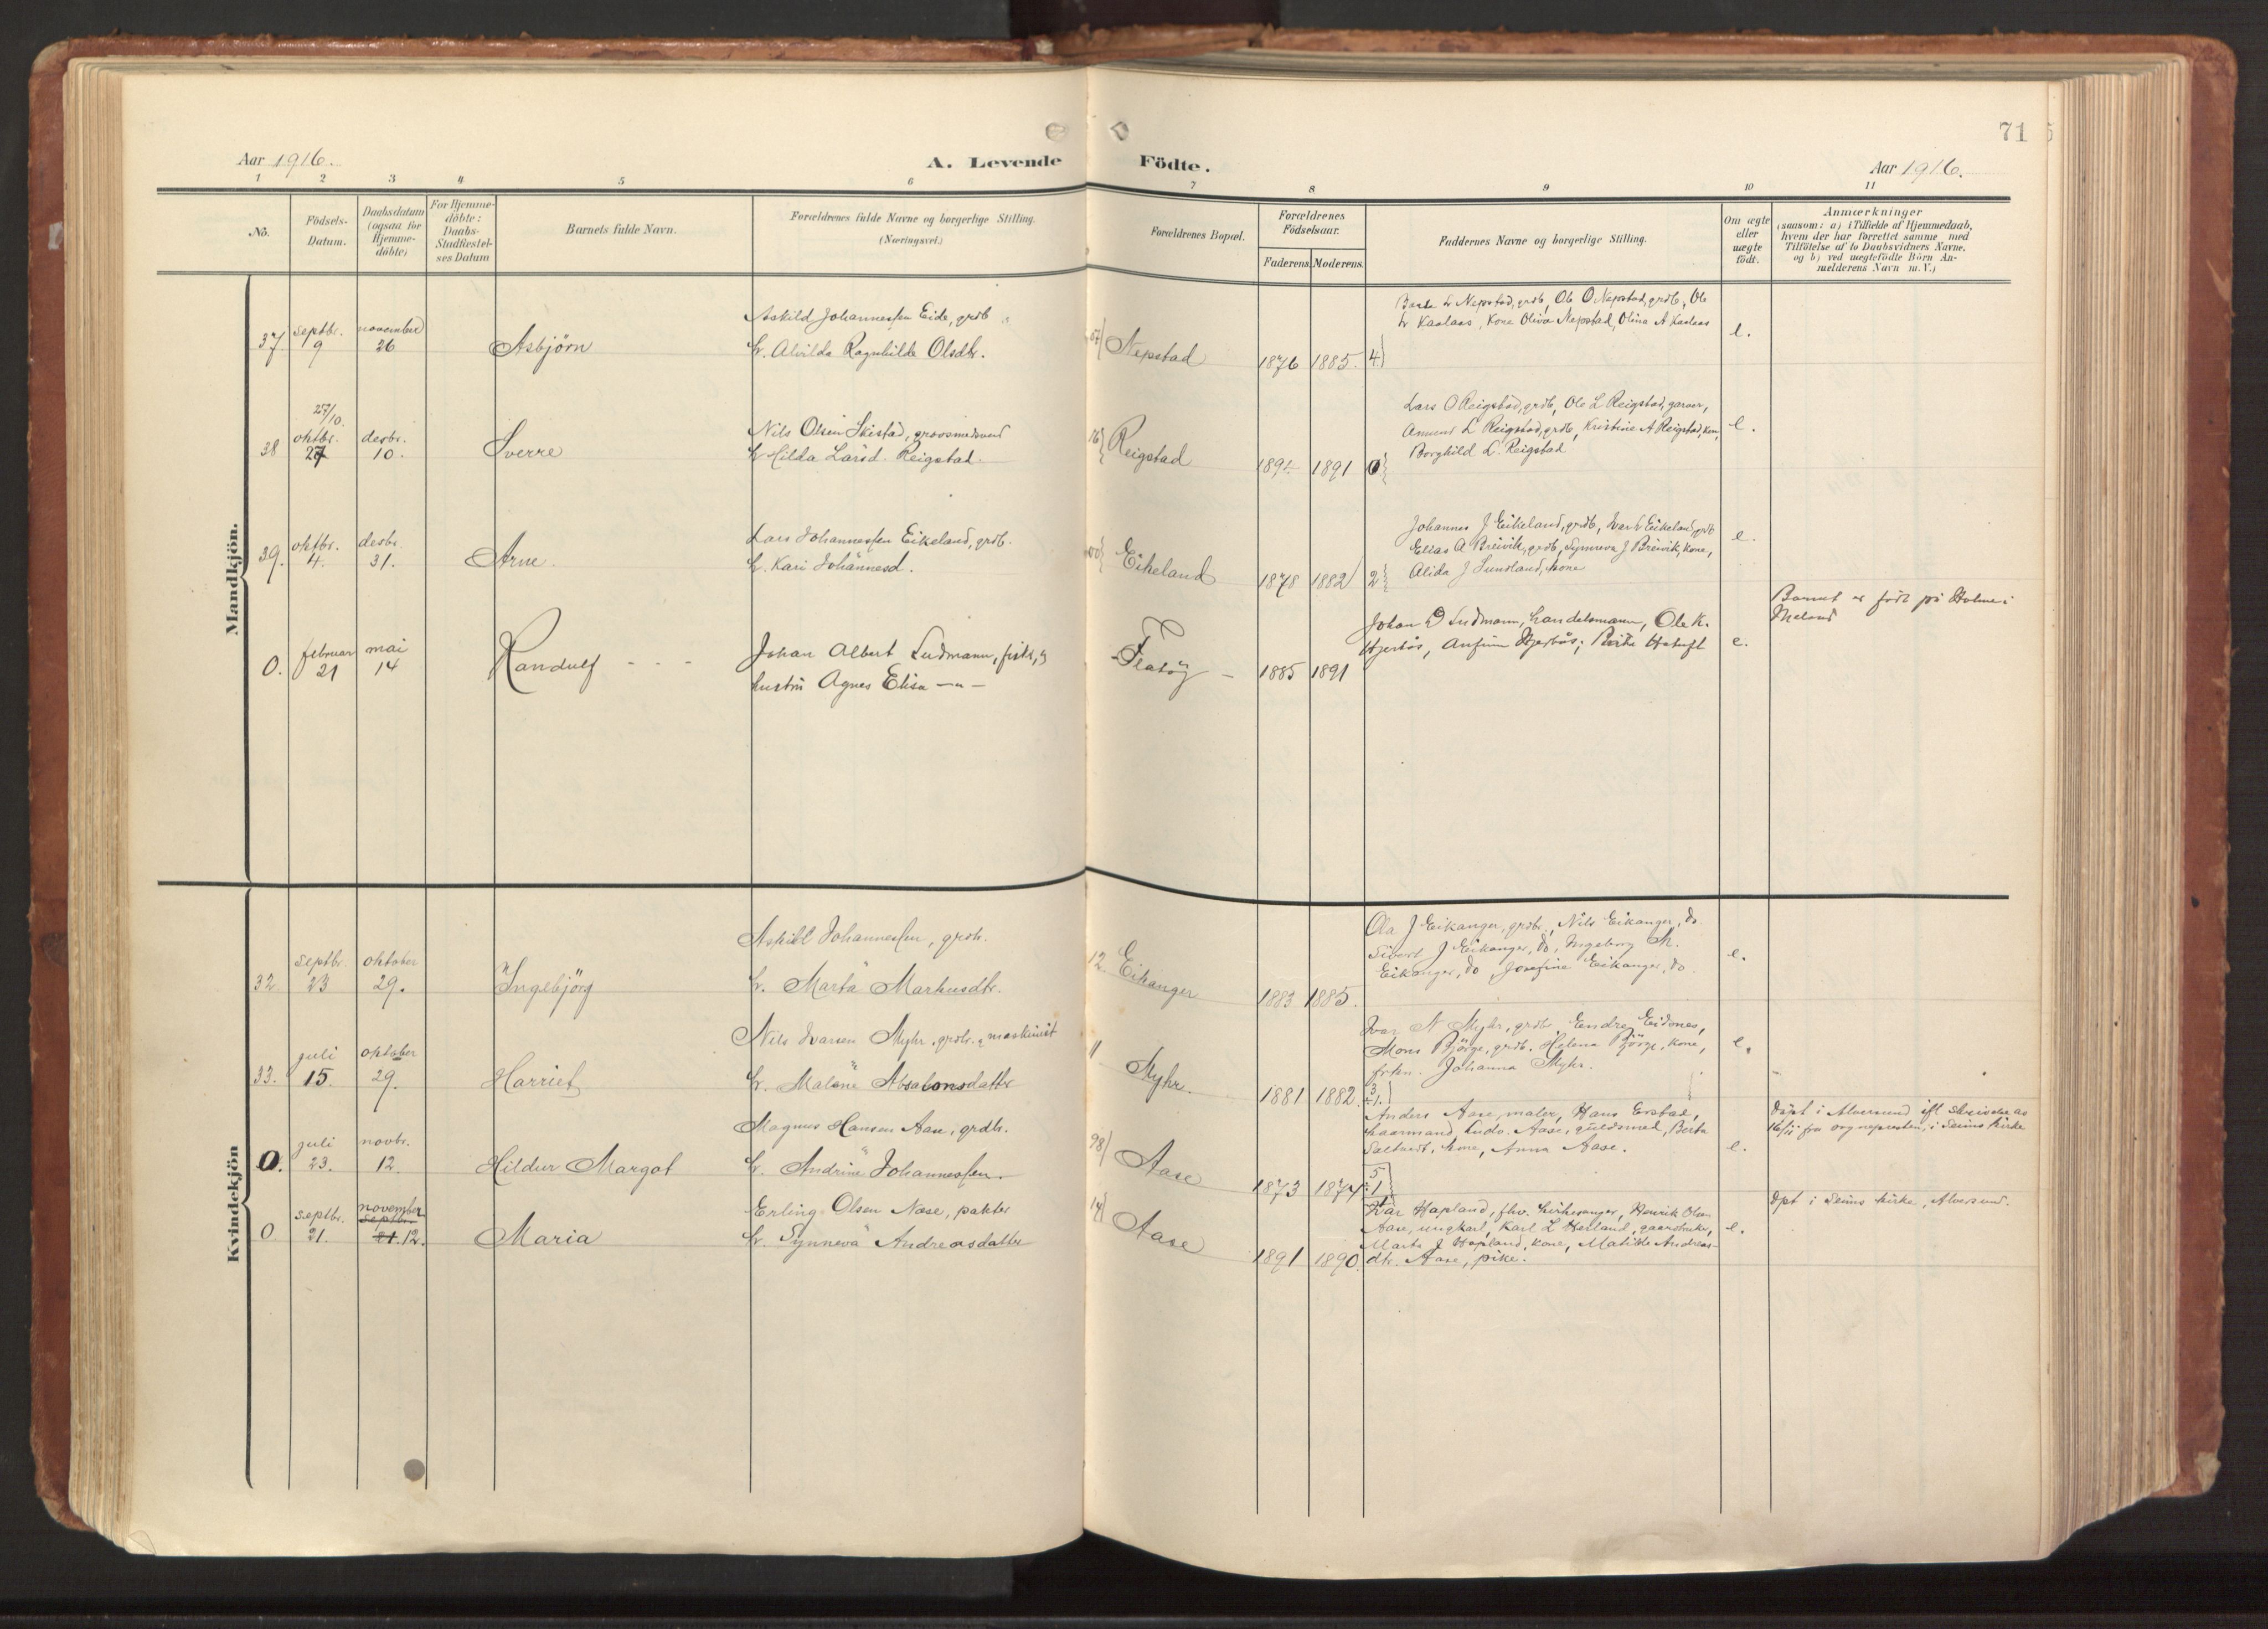 71
Aar 1916.
A. Levende Födte.
Aar 1916.
1 2 3 4 5 6 7 8 9 10 11
No.
Födsels-
Datum.
Daabsdatum
(ogsaa for
Hjemme-
döbte)
For Hjemme-
döbte:
Daabs-
Stadfæstel-
ses Datum
Barnets fulde Navn.
Forældrenes fulde Navne og borgerlige Stilling.
(Næringsvei.)
Forældrenes Bopæl.
Forældrenes
Födselsaar.
Faderens. Moderens.
Faddernes Navne og borgerlige Stilling.
Om ægte
eller
uægte
födt.
Anmærkninger
(saasom: a) i Tilfælde af Hjemmedaab,
hvem der har forrettet samme med
Tilföielse af to Daabsvidners Navne,
og b) ved uægtefödte Börn An-
melderens Navn m. V.)
Mandkjön.
37 septbr. 9 november 26
Asbjörn
Askild Johannessen Eide, grdb
h. Alvilda Ragnhilde Olsdtr.
Nepstad
1876 1885. 4
L Nepstad, grdb, Ole O Nepstad, grdb, Ole
Kaalaas, Kone Oliva Nepstad, Olina A Kaalaas
e.
38 27/10. oktbr. 27 desbr. 10.
Sverre
Nils Olsen Skistad, grovsmedsvend
h Hilda Larsd. Reigstad.
16 Reigstad
1891 0
Lars O Reigstad, grdb, Ole L Reigstad, garver,
Amund L Reigstad, grdb, Kristine A Reigstad, kone,
Borghild L. Reigstad
e.
39. oktbr. 4. desbr. 31.
Arne.
Lars Johannessen Eikeland, grdb.
h. Kari Johannesd.
Eikeland
1878 1882 2
Johannes J Eikeland, grdb, Eikeland, grdb
Elias A Breivik, grdb, Synneva J Breivik, kone,
Alida J Sundland, kone
e.
0. februar 21 mai 14
Randulf - - -
Johan Albert Ludmann, fisker, og
hustru Agnes Elisa —"—
Flatöy —
1885 1891
Johan D Ludmann, handelsmann, Ole K.
Hjertås, Anfinn Hjertås, Hatuft
e.
Barnet er född på Holme i
Meland
Kvindekjön
32 septbr. 23 oktober 29.
Ingebjörg
Askild Johannessen, grdb.
h. Marta Markusdtr.
12 Eikanger
1883 1885.
Ola J Eikanger, grdbr., Nils Eikanger, do
Sivert J Eikanger, do, Ingeborg M.
Eikanger, do, Josefine Eikanger, do.
e.
33. juli 15. oktober 29.
Harriet
Nils Ivarsen Myhr, grdbr. & maskinist
h. Malene Absalonsdatter
11 Myhr.
1881 1882. 3 ÷1.
Ivar N Myhr, grdb, Endre Eidsnes,
Mons Björge, grdb. Helena Björge, kone,
frken. Johanna Myhr.
e.
0. juli 23. novbr. 12.
Hildur Margot
Magnus Hansen Aase, grdb.
h. Andrine Johannessen.
98 Aase
1873 1874 5 ÷1
Anders Aase, maler, Hans Erstad,
haarmand Ludv. Aase, gulsmed, Berta
kone, Anna Aase.
e.
döpt i Alversund ifl. skrivelse av
16/11 fra sognepresten, i Seims kirke
0 septbr. 21. november septbr. 21. 12.
Maria
Erling Olsen Nose, pakter
h. Synneva Andreasdatter
14 Aase
1891 1890.
Ivar Hopland, fhv. kirkesanger, Henrik Olsen
Aase, ungkarl, Karl L Herland, gaardbruker,
Marta J Hopland, kone, Matilde Andreas-
dtr. Aase, pike.
e.
dpt i Seims kirke, Alversund.